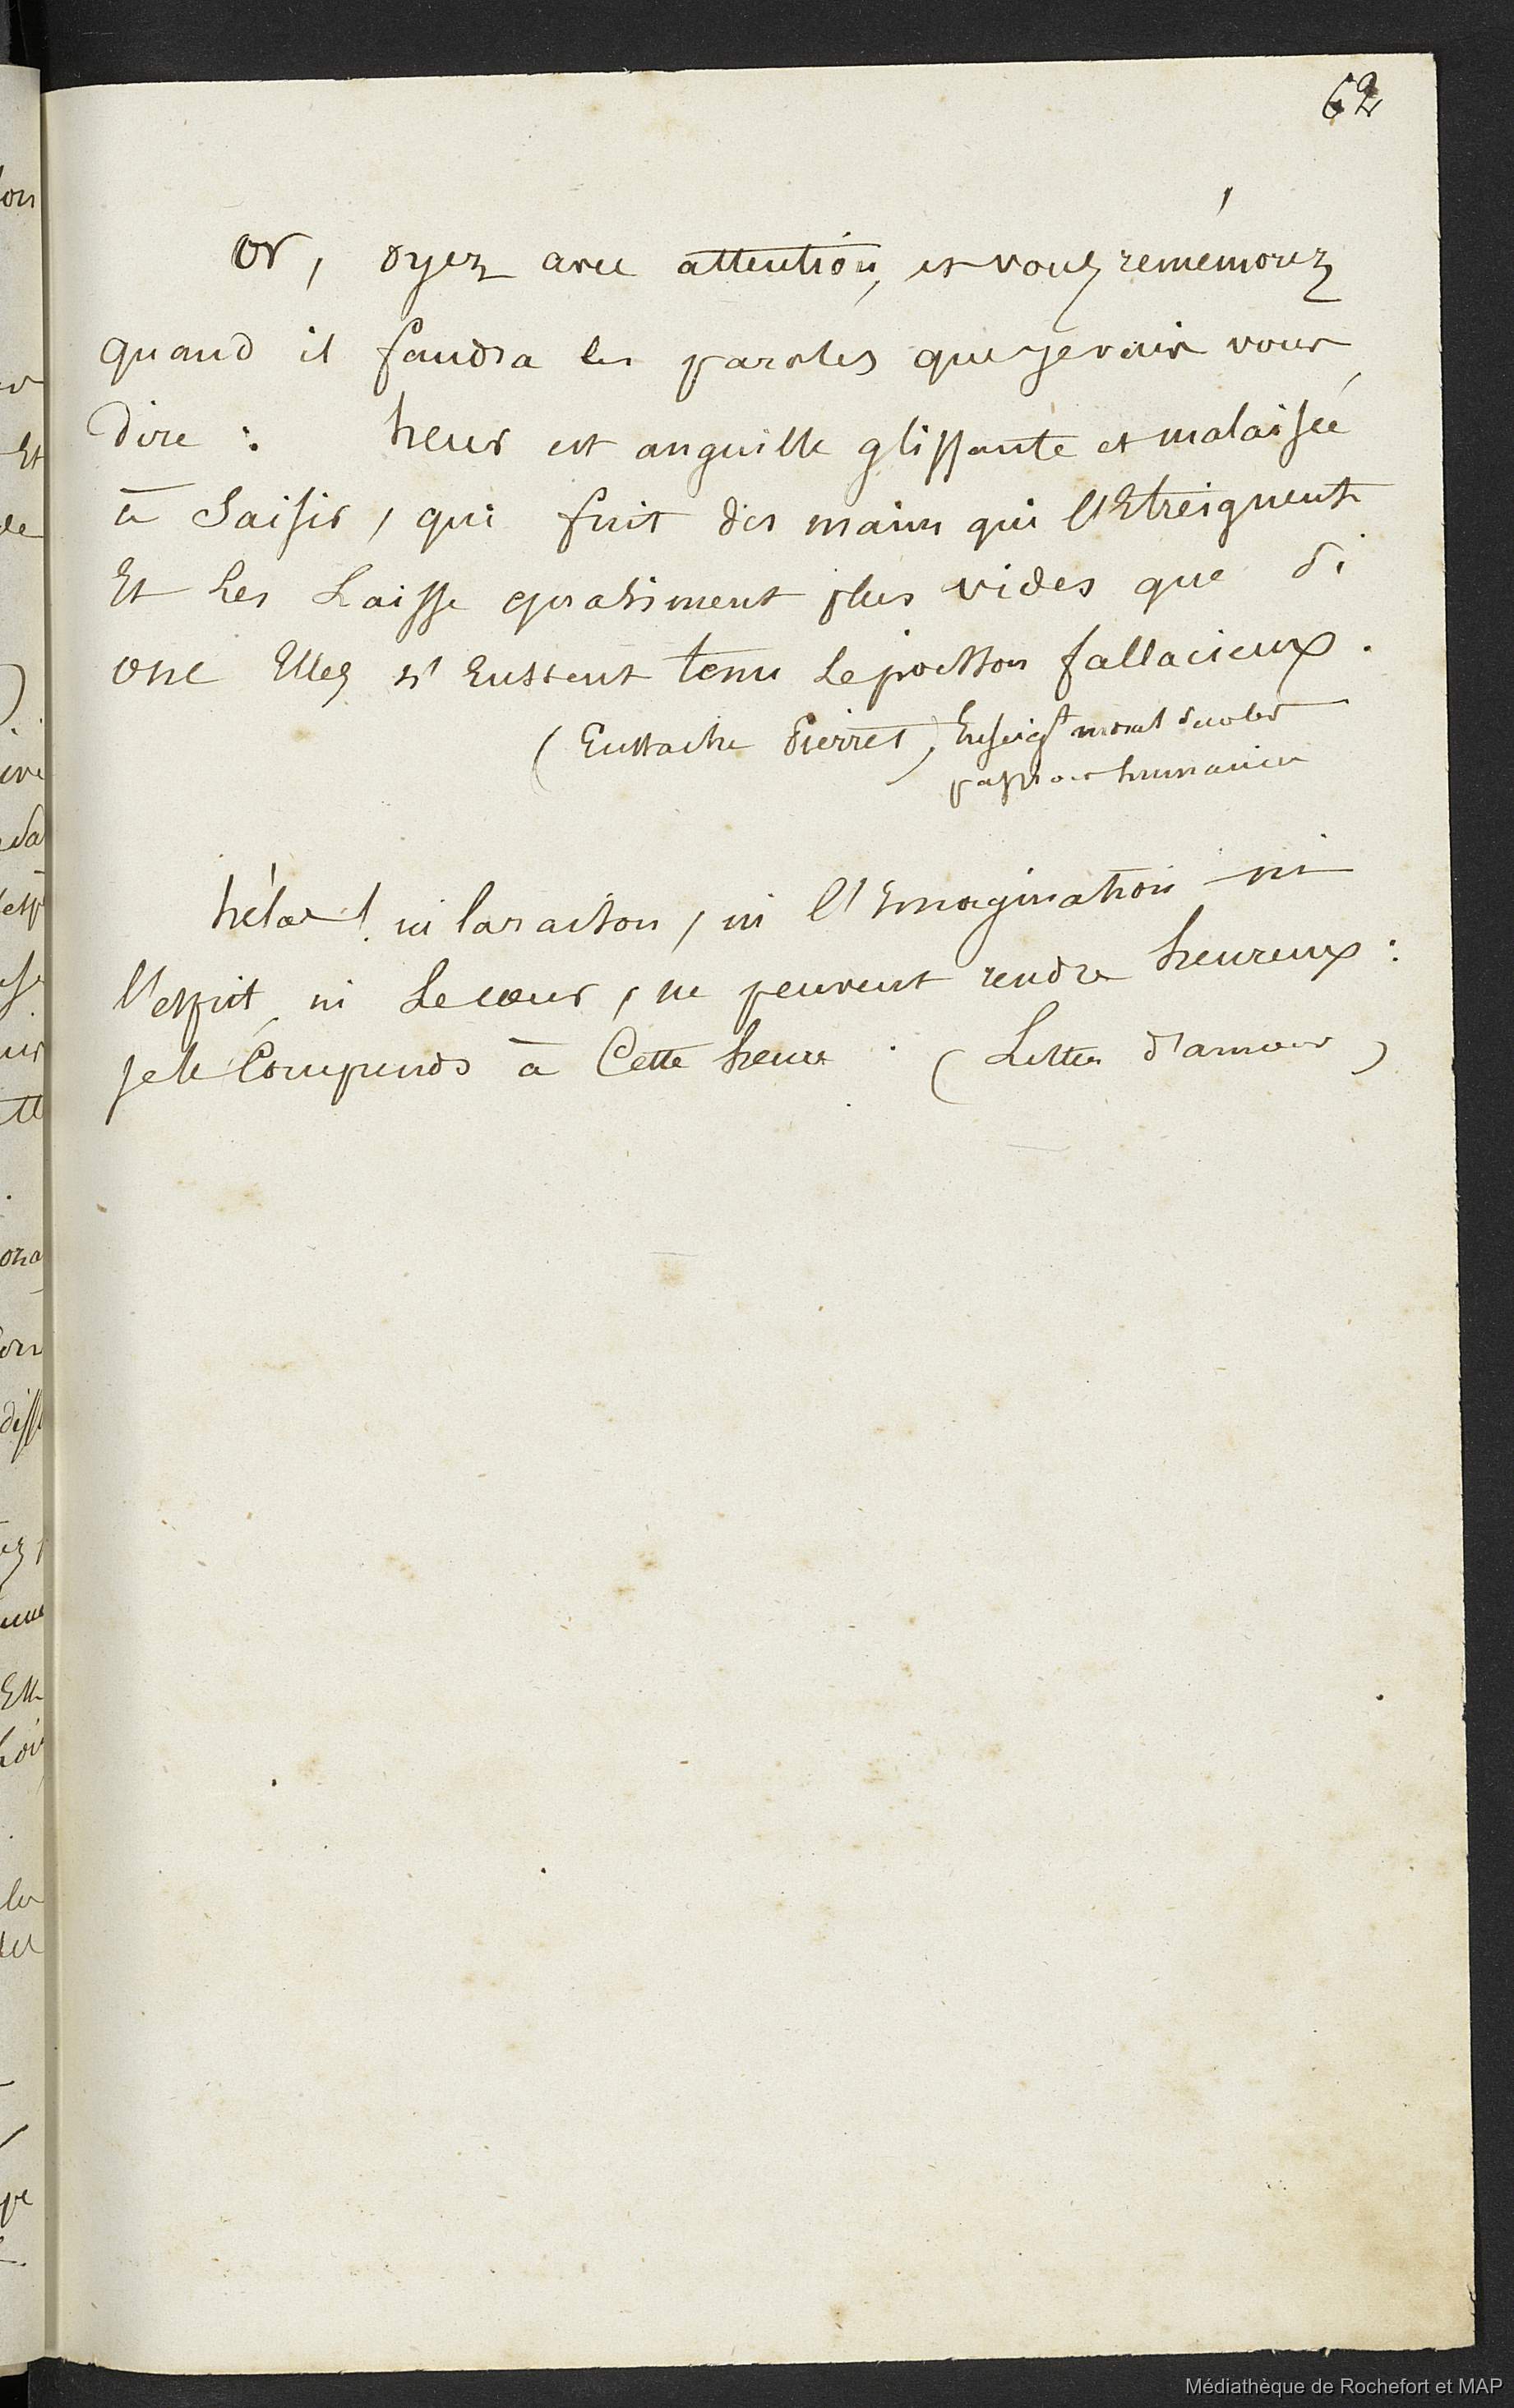 62
Or, oyez avec attention, et vous remémorez
quand il faudra les paroles que je vais vous
dire : heur est anguille glissante et malaisée
à saisir, qui fuit des mains qui l'Etreignent
Et les Laisse quasiment plus vides que si
onc Elles n'Eussent tenu Le poisson fallacieux.
(Eustache Pierret, Enseigt moral
humanien
hélas ! ni la raison, ni l'imagination ni
l'esprit ni Le cœur, ne peuvent rendre heureux :
je le Comprends à Cette heure. (Lettres d'amour)
Médiathèque de Rochefort et MAP